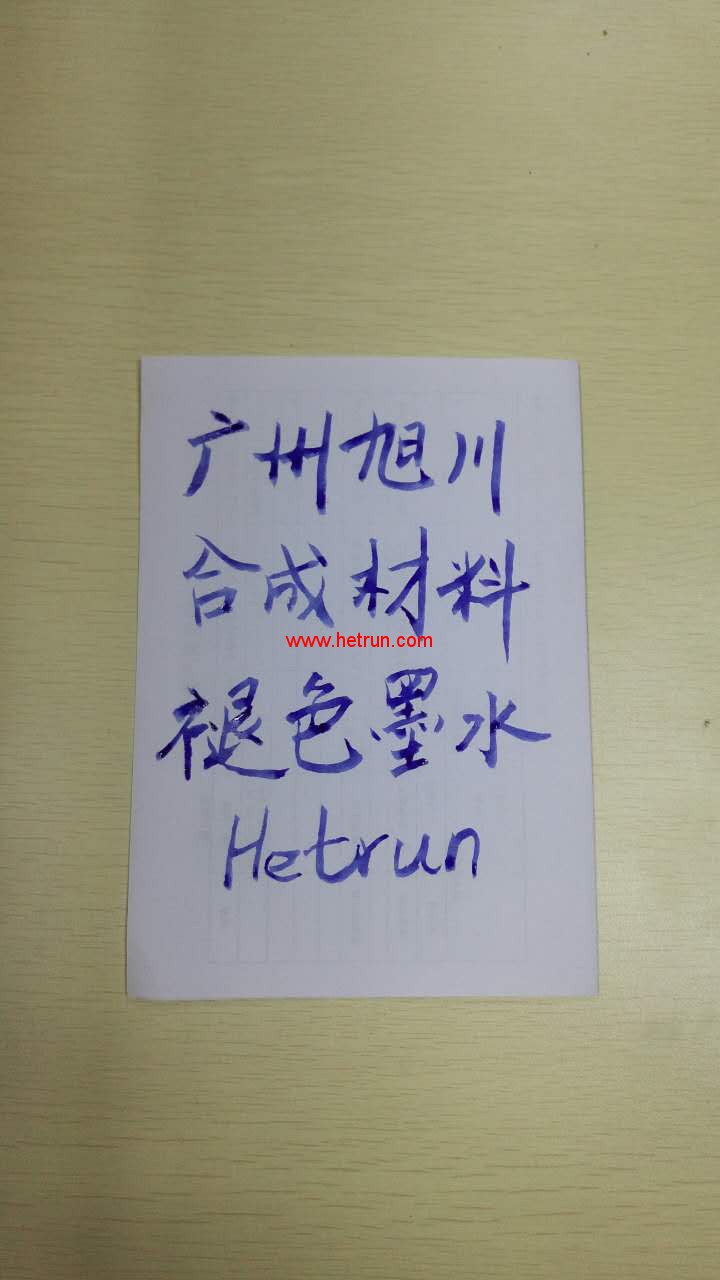 广州旭川
合成材料
www.hetrun.com
褪色墨水
Hetrun